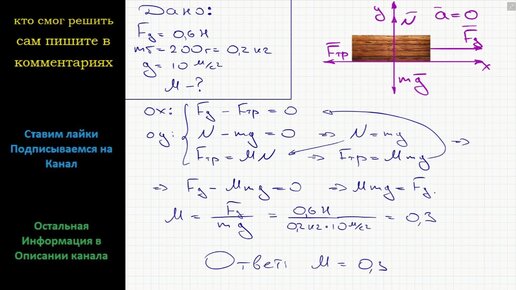 кто смог решить
сам пишите в
комментариях
Ставим лайки
Подписываемся на
Канал
Остальная
Информация в
Описании канала
Дано:
Fд = 0,6 Н
mб = 200 г = 0,2 кг
g = 10 м/с²
μ - ?
y
N
a = 0
Fд
Fтр
x
mg
ox: Fд - Fтр = 0
oy: N - mg = 0 ⇒ N = mg
Fтр = μN ⇒ Fтр = μmg ⇒
⇒ Fд - μmg = 0 ⇒ μmg = Fд.
μ = Fд / mg = 0,6 Н / 0,2 кг · 10 м/с² = 0,3
Ответ: μ = 0,3